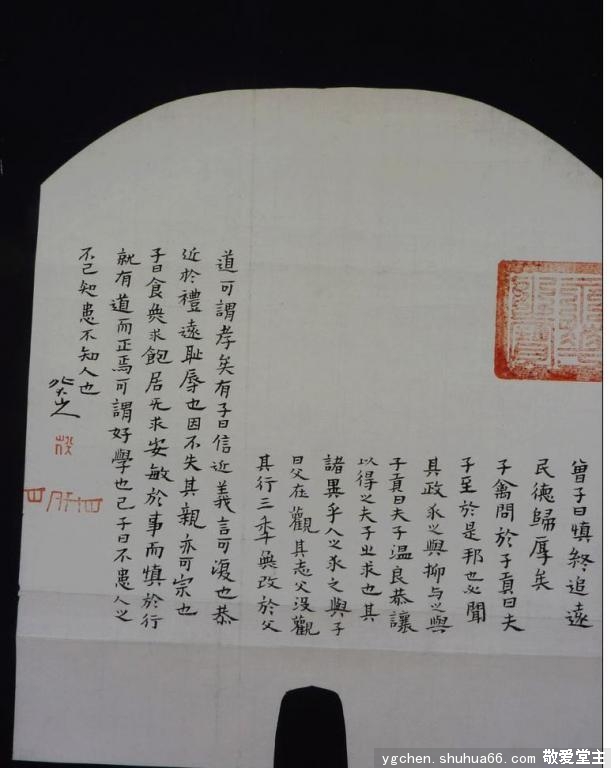 曾子曰慎終追遠
民德歸厚矣
子禽問於子貢曰夫
子至於是邦也必聞
其政求之與抑与之與
子貢曰夫子温良恭讓
以得之夫子之求也其
諸異乎人之求之與子
曰父在觀其志父没觀
其行三秊無改於父
道可謂孝矣有子曰信近義言可復也恭
近於禮遠恥辱也因不失其親亦可宗也
子曰食無求飽居无求安敏於事而慎於行
就有道而正焉可謂好學也已子曰不患人之
不己知患不知人也
ygchen.shuhua66.com 敬爱堂主